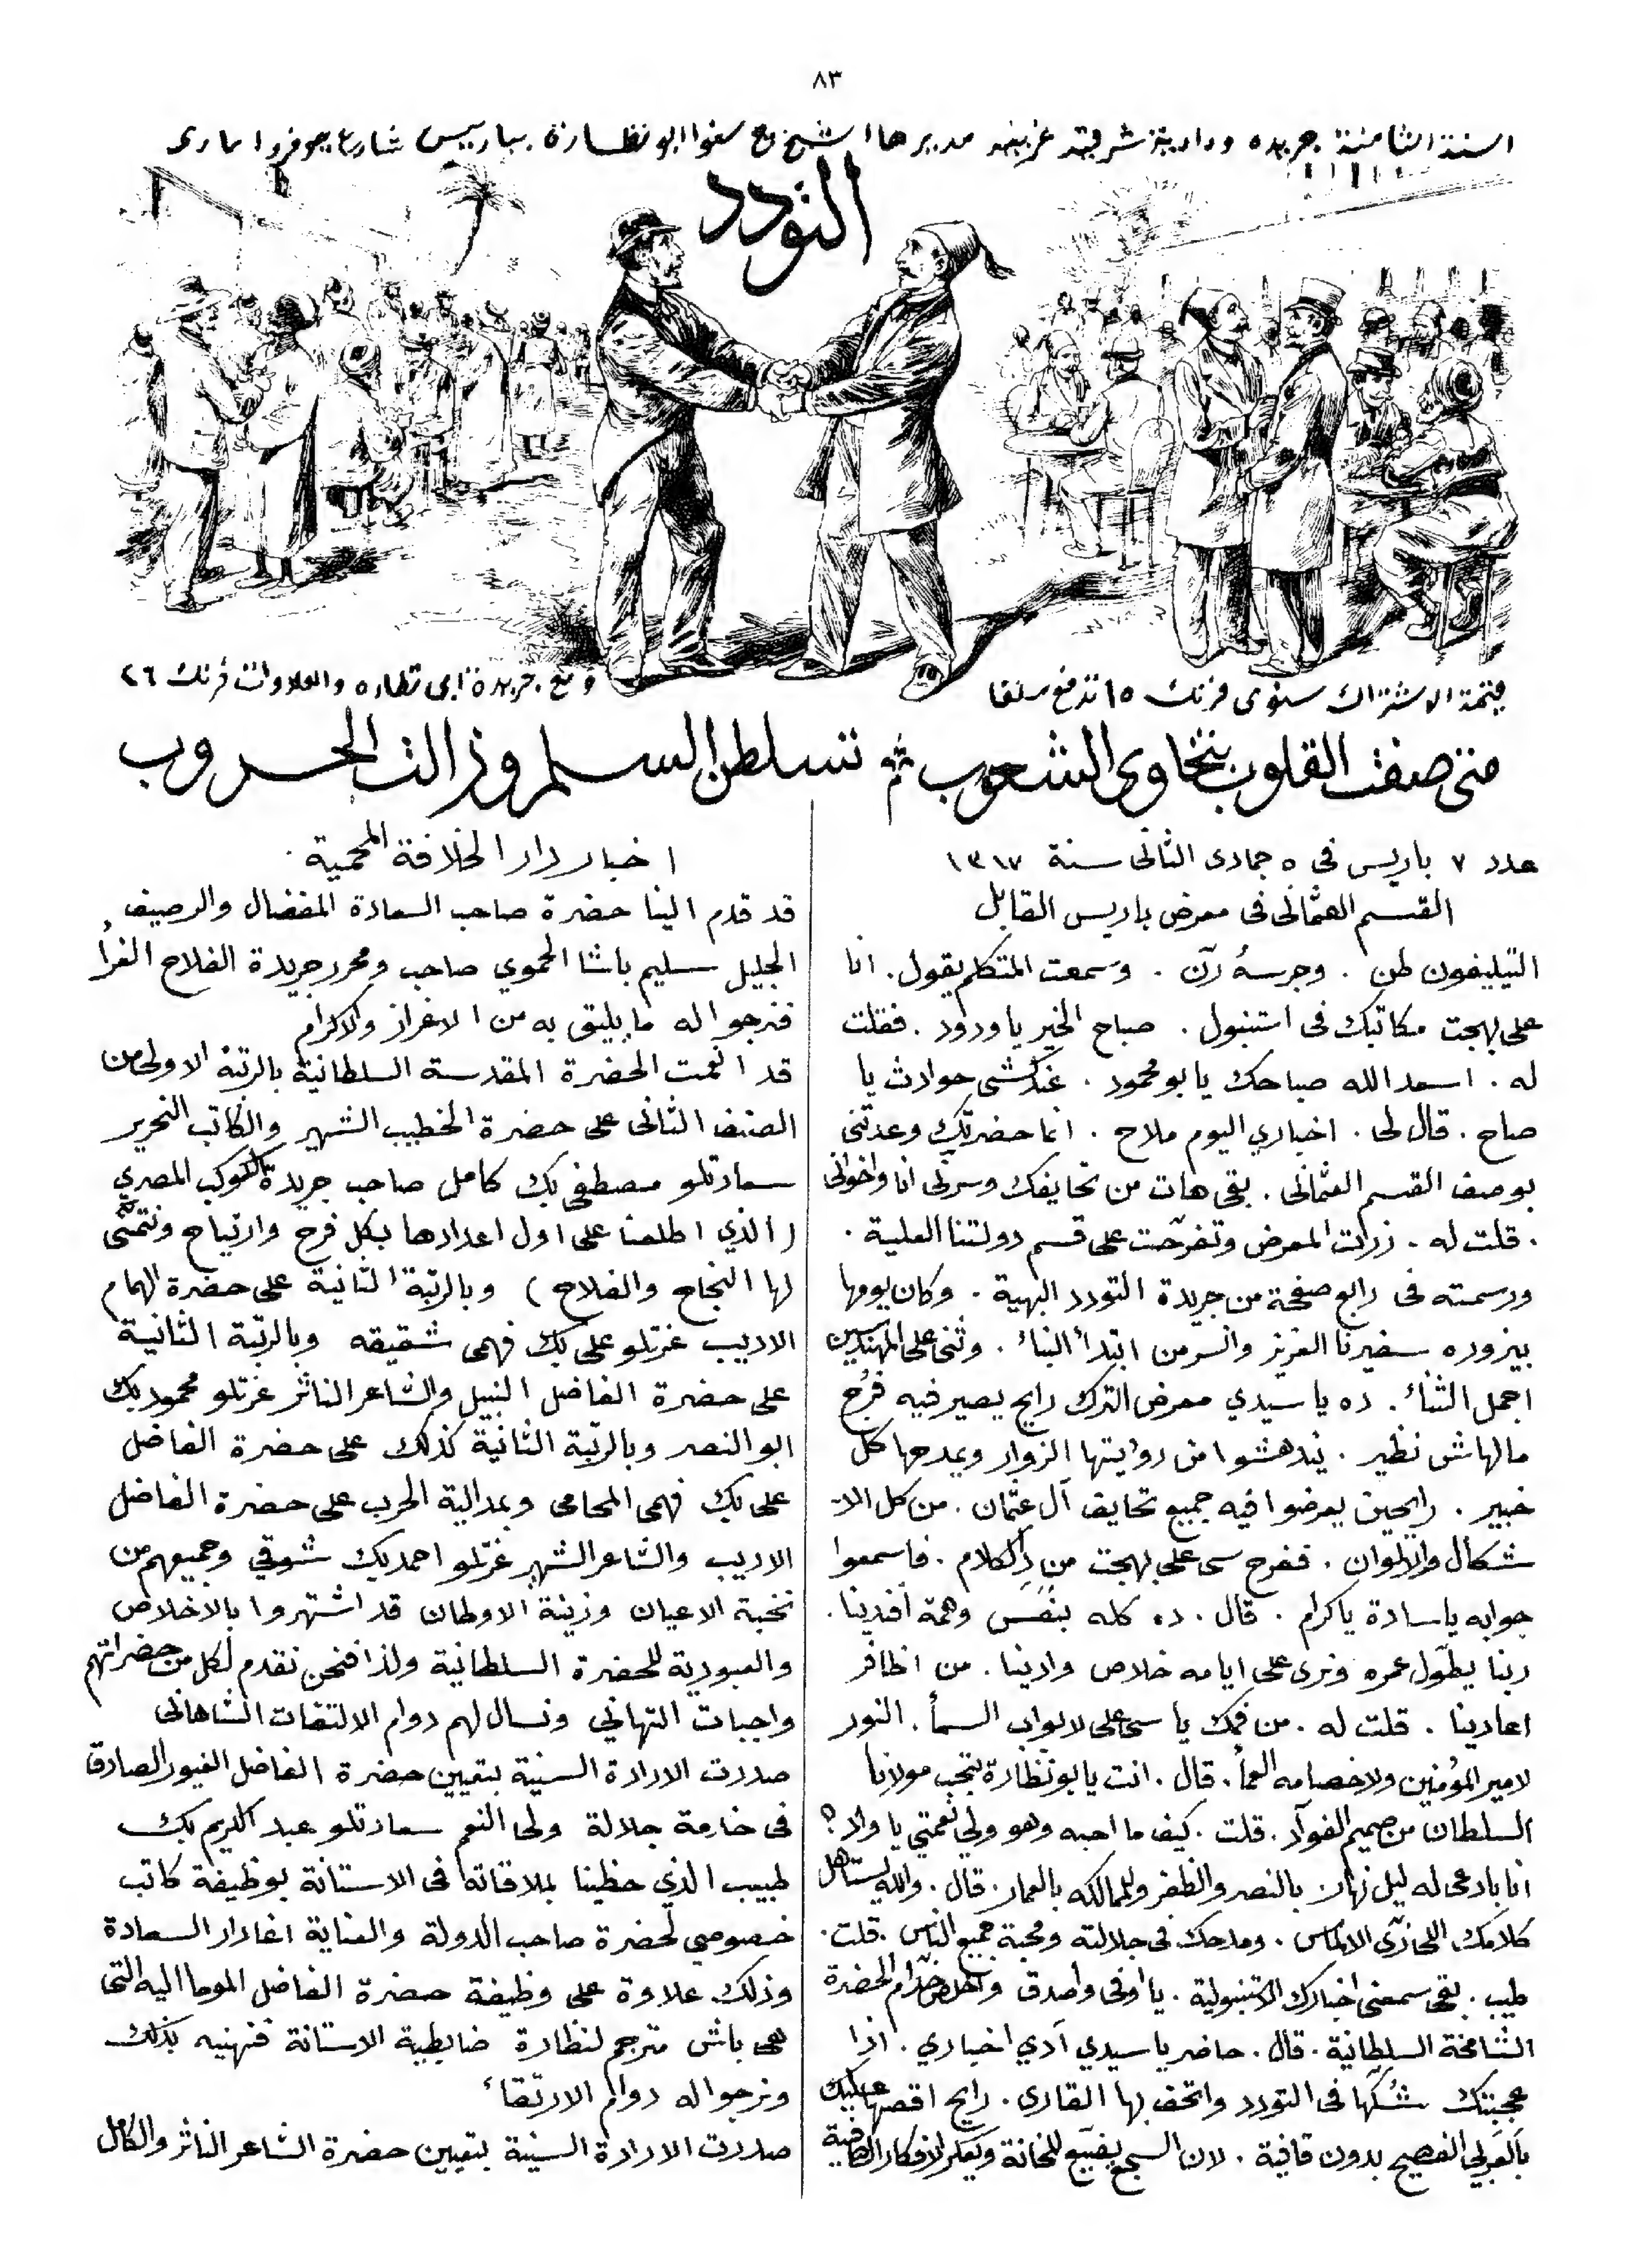 ٨٣
السنة الثامنة جريدة ودادية شرقية غربية مديرها الشيخ ج سنوا ابو نظارة بباريس شارع جوفروا مارى
التودد
قيمة الاشتراك سنوى فرنك ١٥ تدفع سلفا
ومع جريدة ابى نظاره والعلاوات فرنك ٢٦
متى صفت القلوب بتخاوى الشعوب ثم تسلطن السلم وزالت الحروب
عدد ٧ باريس فى ٥ جمادى الثانى سنة ١٣١٧
القسم العثمانى فى معرض باريس القابل
التيليفون طن . وجرسهُ رنّ . وسمعت المتكلم يقول . انا
على بهجت مكاتبك فى استنبول . صباح الخير يا ودود . فقلت
له . اسعد الله صباحك يا بو محمود . عندكشى حوادث يا
صاح . قال لى . اخباري اليوم ملاح . انما حضرتك وعدتنى
بوصف القسم العثمانى . بقى هات من تحايفك وسرنى انا واخوانى
. قلت له . زرات المعرض وتفرّجت على قسم دولتنا العلية .
ورسمته فى رابع صفحة من جريدة التودد البهية . وكان يومها
بيزوره سفيرنا العزيز وانسر من ابتدأ البناء . وثنى على المهندسين
اجمل الثناء . ده يا سيدي معرض الترك رايح يصير فيه فُرَج
مالهاش نظير . يندهشوا من روايتها الزوار ويمدحها كل
خبير . رايحين يعرضوا فيه جميع تحايف آل عثمان . من كل الا-
شكال والالوان . ففرح سى على بهجت من دِالكلام . فاسمعوا
جوابه يا سادة يا كرام . قال . ده كله بنفَس وهمة أفندينا .
ربنا يطوّل عمره ونرى على ايامه خلاص وادينا . من اظافر
اعادينا . قلت له . من فمك يا سى على لابواب السمأ . النور
لامير المؤمنين ولاخصامه العمأ . قال . انت يا بو نظارة بتحب مولانا
السلطان من صميم الفوآد . قلت . كيف ما احبه وهو ولى نعمتي يا ولاد ؟
انا بادعى له ليل نهار بالنصر والظفر ولممالكه بالعمار . قال . والله يستاهل
كلامك اللى زىّ الالماس . ومدحك فى جلالته ومحبة جميع الناس . قلت .
طيب . بقى سمعنى اخبارك الاستنبولية . يا اوفى واصدق واخلص خدّام الحضرة
الشامخة السلطانية . قال . حاضر يا سيدي آدي اخباري . اذا
عجبتك شُكّها فى التودد واتحف بها القارى . رايح اقصها عليك
بالعربى الفصيح بدون قافية . لان السجع يضيّع للخانة ويعكر الافكار الصافية
اخبار دار الخلافة المحمية .
قد قدم الينا حضرة صاحب السعادة المفضال والرصيف
الجليل سليم باشا الحموي صاحب ومحرر جريدة الفلاح الغراء
فنرجو اله ما يليق به من الاعزاز والاكرام
قد انعمت الحضرة المقدسة السلطانية بالرتبة الاولى من
الصنف الثانى على حضرة الخطيب الشهير والكاتب النحرير
سعادتلو مصطفى بك كامل صاحب جريدة الكوكب المصري
( الذي اطلعنا على اول اعدادها بكل فرح وارتياح ونتمنّى
لها النجاح والفلاح ) وبالرتبة الثانية على حضرة الهمام
الاديب عزتلو على بك فهمى شقيقه وبالرتبة الثانية
على حضرة الفاضل النبيل والشاعر الناثر عزتلو محمود بك
ابو النصر وبالرتبة الثانية كذلك على حضرة الفاضل
على بك فهمى المحامى وبمدالية الحرب على حضرة الفاضل
الاديب والشاعر الشهير عزتلو احمد بك شوقي وجميعهم من
نخبة الاعيان وزينة الاوطان قد اشتهروا بالاخلاص
والعبودية للحضرة السلطانية ولذا فنحن نقدم لكل من حضراتهم
واجبات التهاني ونسال لهم دوام الالتفات الشاهانى
صدرت الارادة السنية بتعيين حضرة الفاضل الغيور الصادق
فى خدمة جلالة ولى النعم سعادتلو عبد الكريم بك
طبيب الذي حظينا بملاقاته فى الاستانة بوظيفة كاتب
خصوصي لحضرة صاحب الدولة والعناية اغا دار السعادة
وذلك علاوة على وظيفة حضرة الفاضل الموما اليه التى
هى باش مترجم لنظارة ضابطية الاستانة فنهنيه بذلك
ونرجو اله دوام الارتقاء
صدرت الارادة السنية بتعيين حضرة الشاعر الناثر والكامل